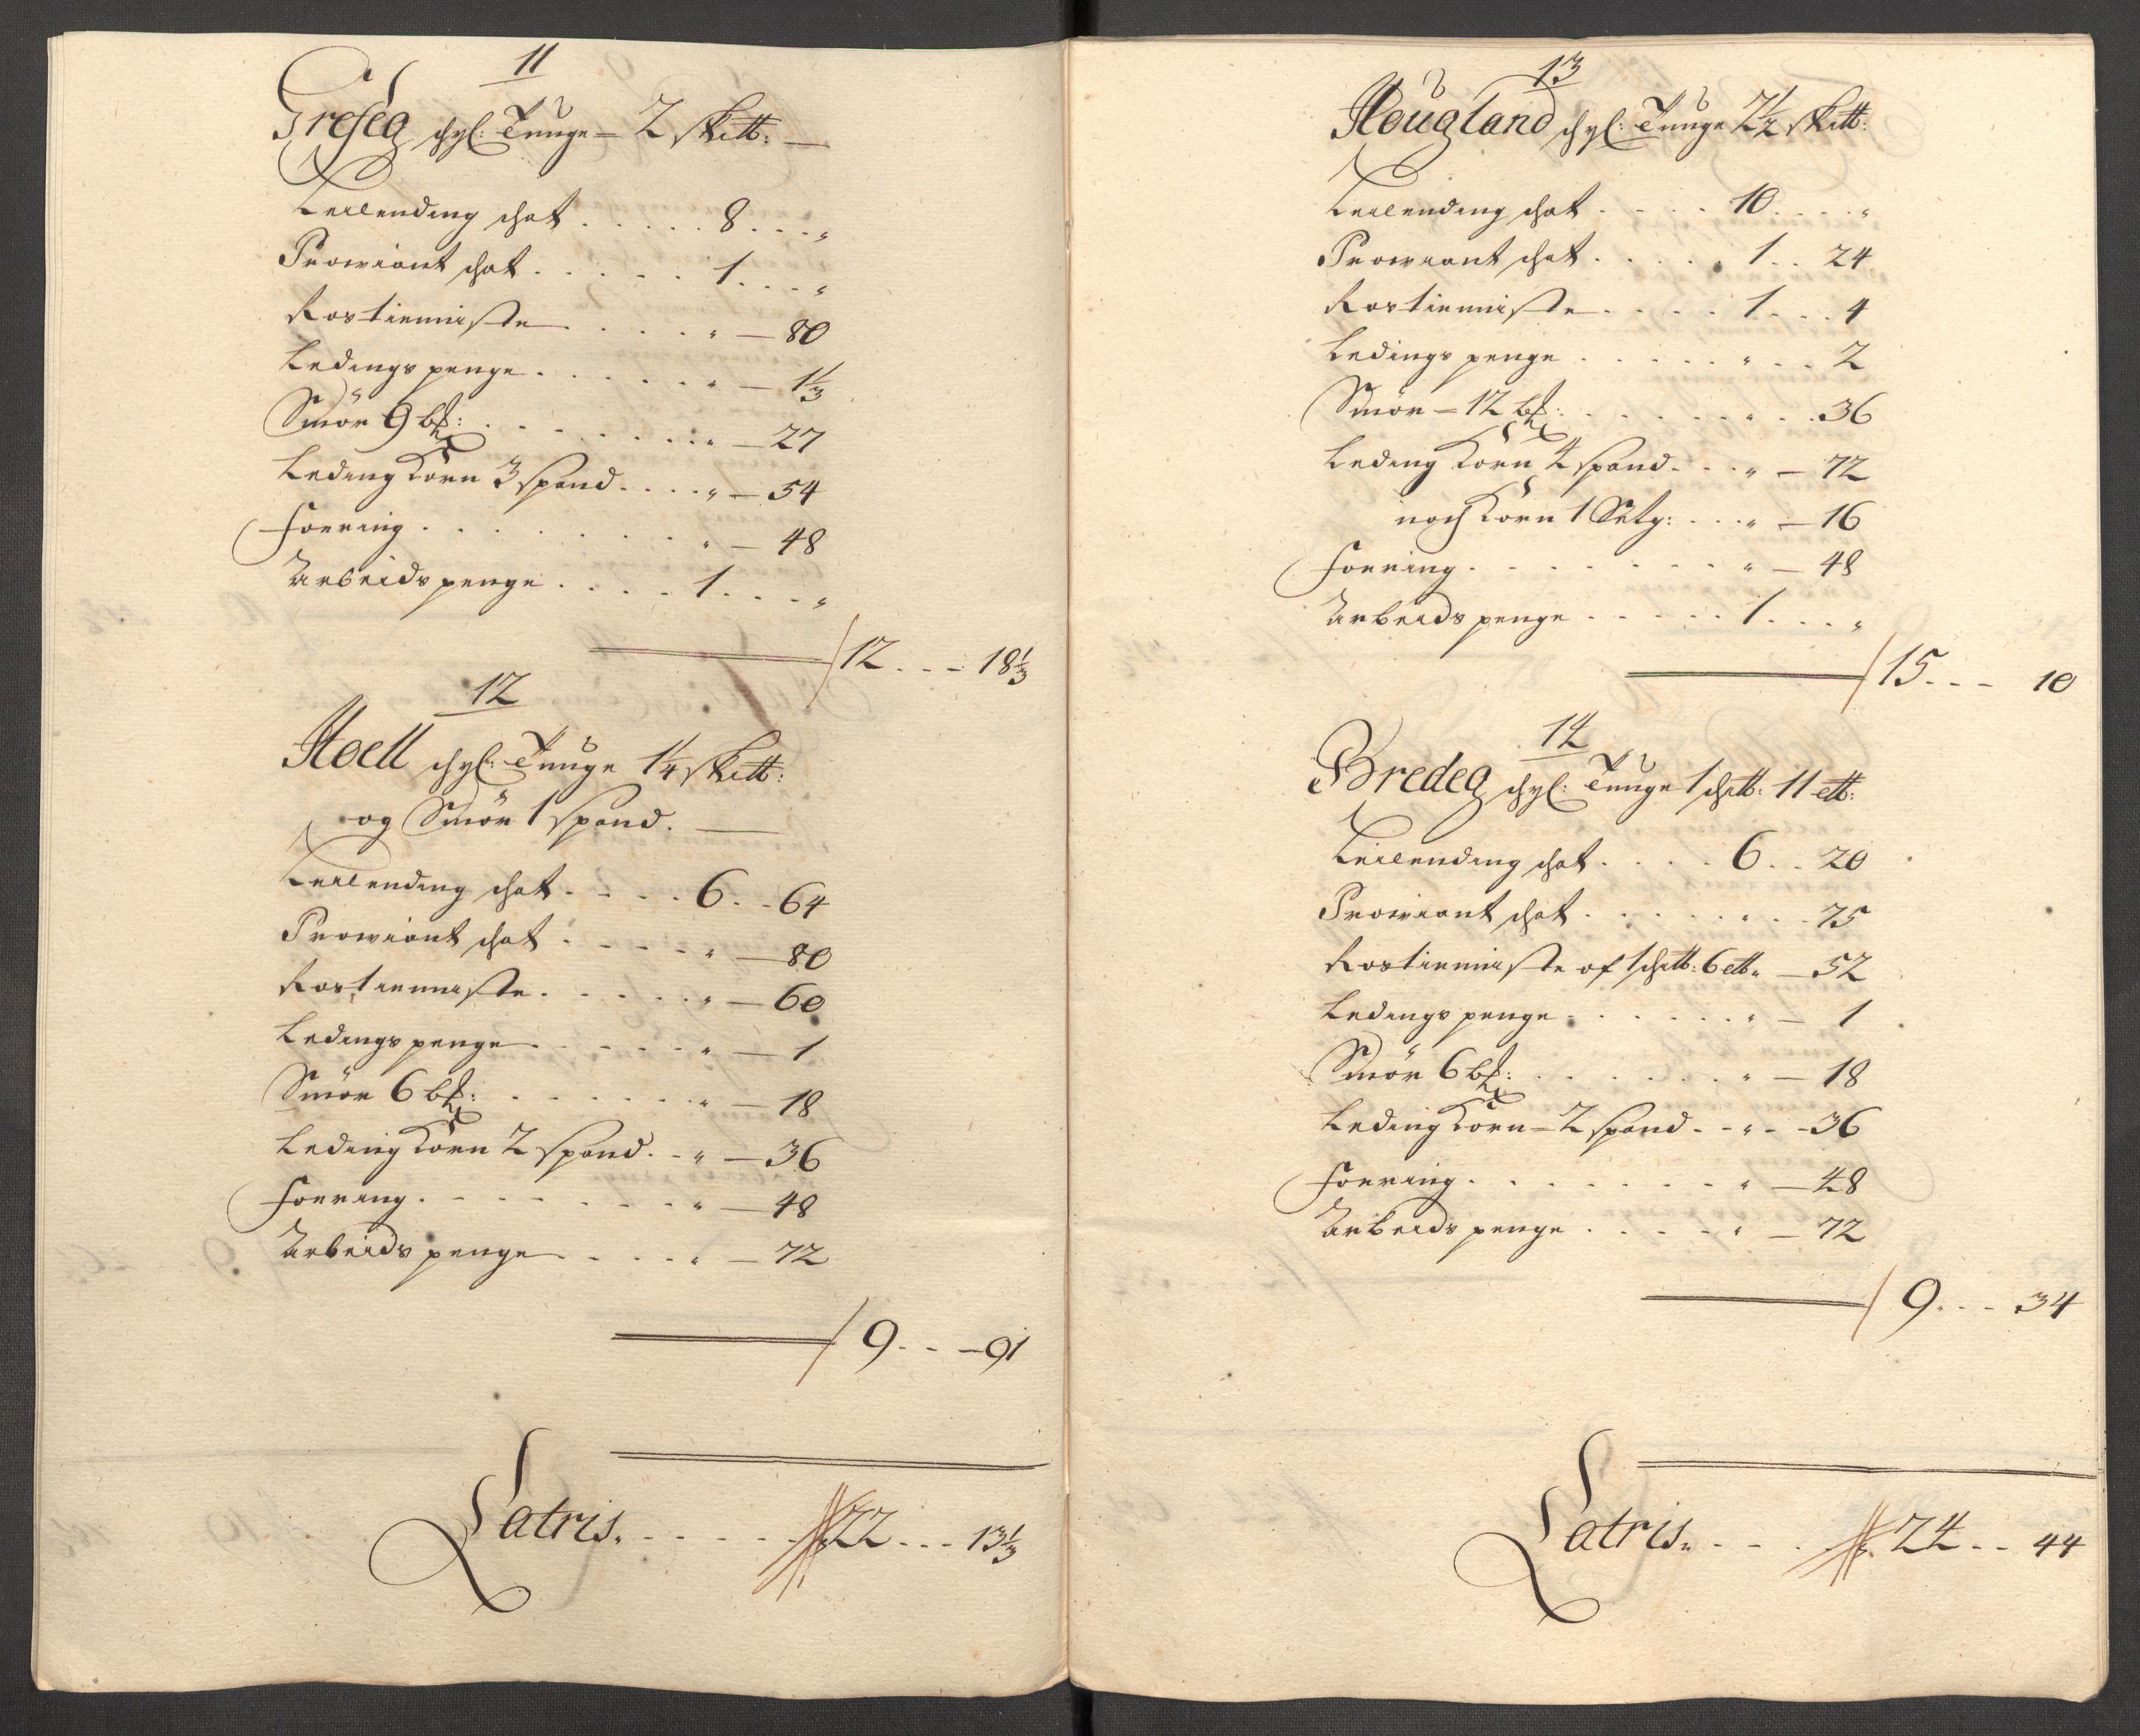 11
Greseg schyl: Tunge – 2 skill: —
Leilending schat . . . . . 8 . . . "
Proviant schat . . . . . 1 . . . "
Rostienniste . . . . " — 80
Ledings penge . . . . . " — 1 1/3
Smör 9 bβ: . . . . . . . " — 27
Leding Korn 3 spand . . . . " — 54
Foering . . . . . . . . " — 48
Arbeids penge . . . . 1 . . . "
12 . . . 18 1/3
12
Hoell schyl: Tunge 1 1/4 skill:
og Smör 1 spand. —
Leilending schat . . . . 6 . . 64
Proviant schat . . . . . " — 80
Rostienniste . . . . . " — 60
Ledings penge . . . . . " — 1
Smör 6 bβ: . . . . . . . " — 18
Leding Korn 2 spand . . " — 36
Foering . . . . . . . . " — 48
Arbeids penge . . . . " — 72
9 . . — 91
Latris. . . . . . 22 . . . 13 1/3
13
Hougland schyl: Tunge 2 1/2 skill:
Leilending schat . . . . 10 . . . . "
Proviant schat . . . . . 1 . . 24
Rostienniste . . . . 1 . . . 4
Ledings penge . . . . . " . . . 2
Smör – 12 bβ: . . . . . . " . . . 36
Leding Korn 4 spand . . . " — 72
noch Korn 1 Setg: . . . " — 16
Foering . . . . . . . . " — 48
Arbeids penge . . . . . 1 . . . "
15 . . . 10
14
Bredeg schyl: Tunge 1 schill: 11 ett:
Leilending schat . . . . 6 . . 20
Proviant schat . . . . . " . . . 75
Rostienniste of 1 schill: 6 ett " — 52
Ledings penge . . . . . . " — 1
Smör 6 bβ: . . . . . . . " — 18
Leding Korn – 2 spand . . " . . 36
Foering . . . . . . . . " — 48
Arbeids penge . . . . . " — 72
9 . . . 34
Latris. . . . . 24 . . 44